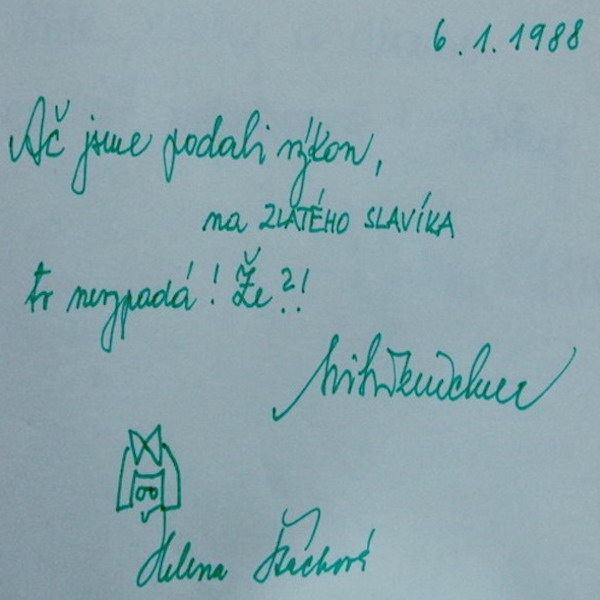 6.1.1988
Ač jsme podali výkon,
na ZLATÉHO SLAVÍKA
to nevypadá! Že?!
Helena Štáchová